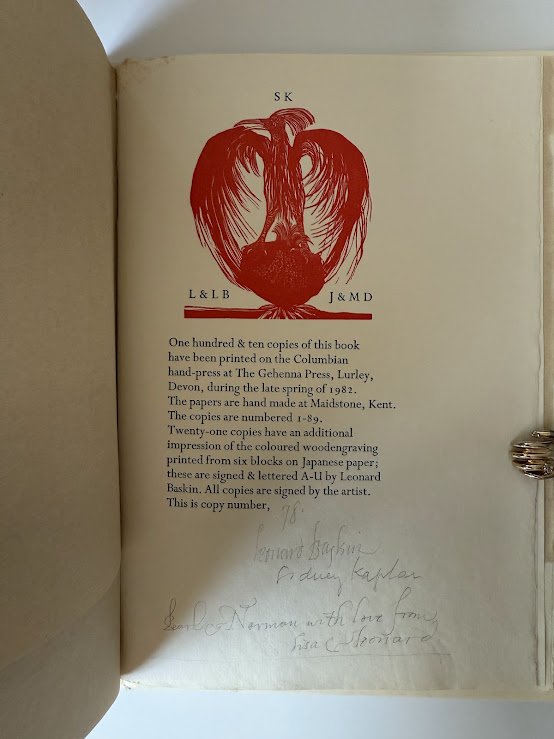 S K
L & L B
J & M D
One hundred & ten copies of this book
have been printed on the Columbian
hand-press at The Gehenna Press, Lurley,
Devon, during the late spring of 1982.
The papers are hand made at Maidstone, Kent.
The copies are numbered 1-89.
Twenty-one copies have an additional
impression of the coloured woodengraving
printed from six blocks on Japanese paper;
these are signed & lettered A-U by Leonard
Baskin. All copies are signed by the artist.
This is copy number,
78.
Leonard Baskin
Sidney Kaplan
& Norman with love from
Lisa & Leonard